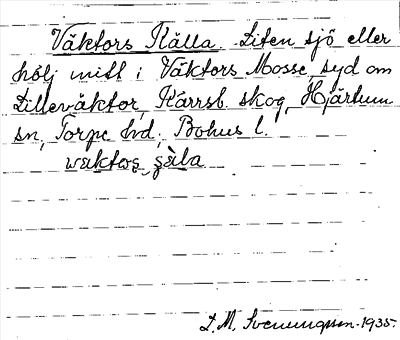 Väktors Källa Liten sjö eller
hölj mitt i Väktors Mosse, syd om
Lilleväktor, Kärrsb. skog, Hjärtum
sn, Torpe hd, Bohus l.
waktors
L. M. Svenungsson 1935.